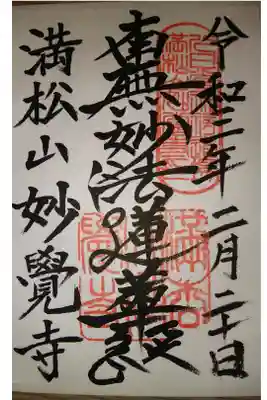 令和三年 二月二十日
南無妙法蓮華経
満松山妙覺寺